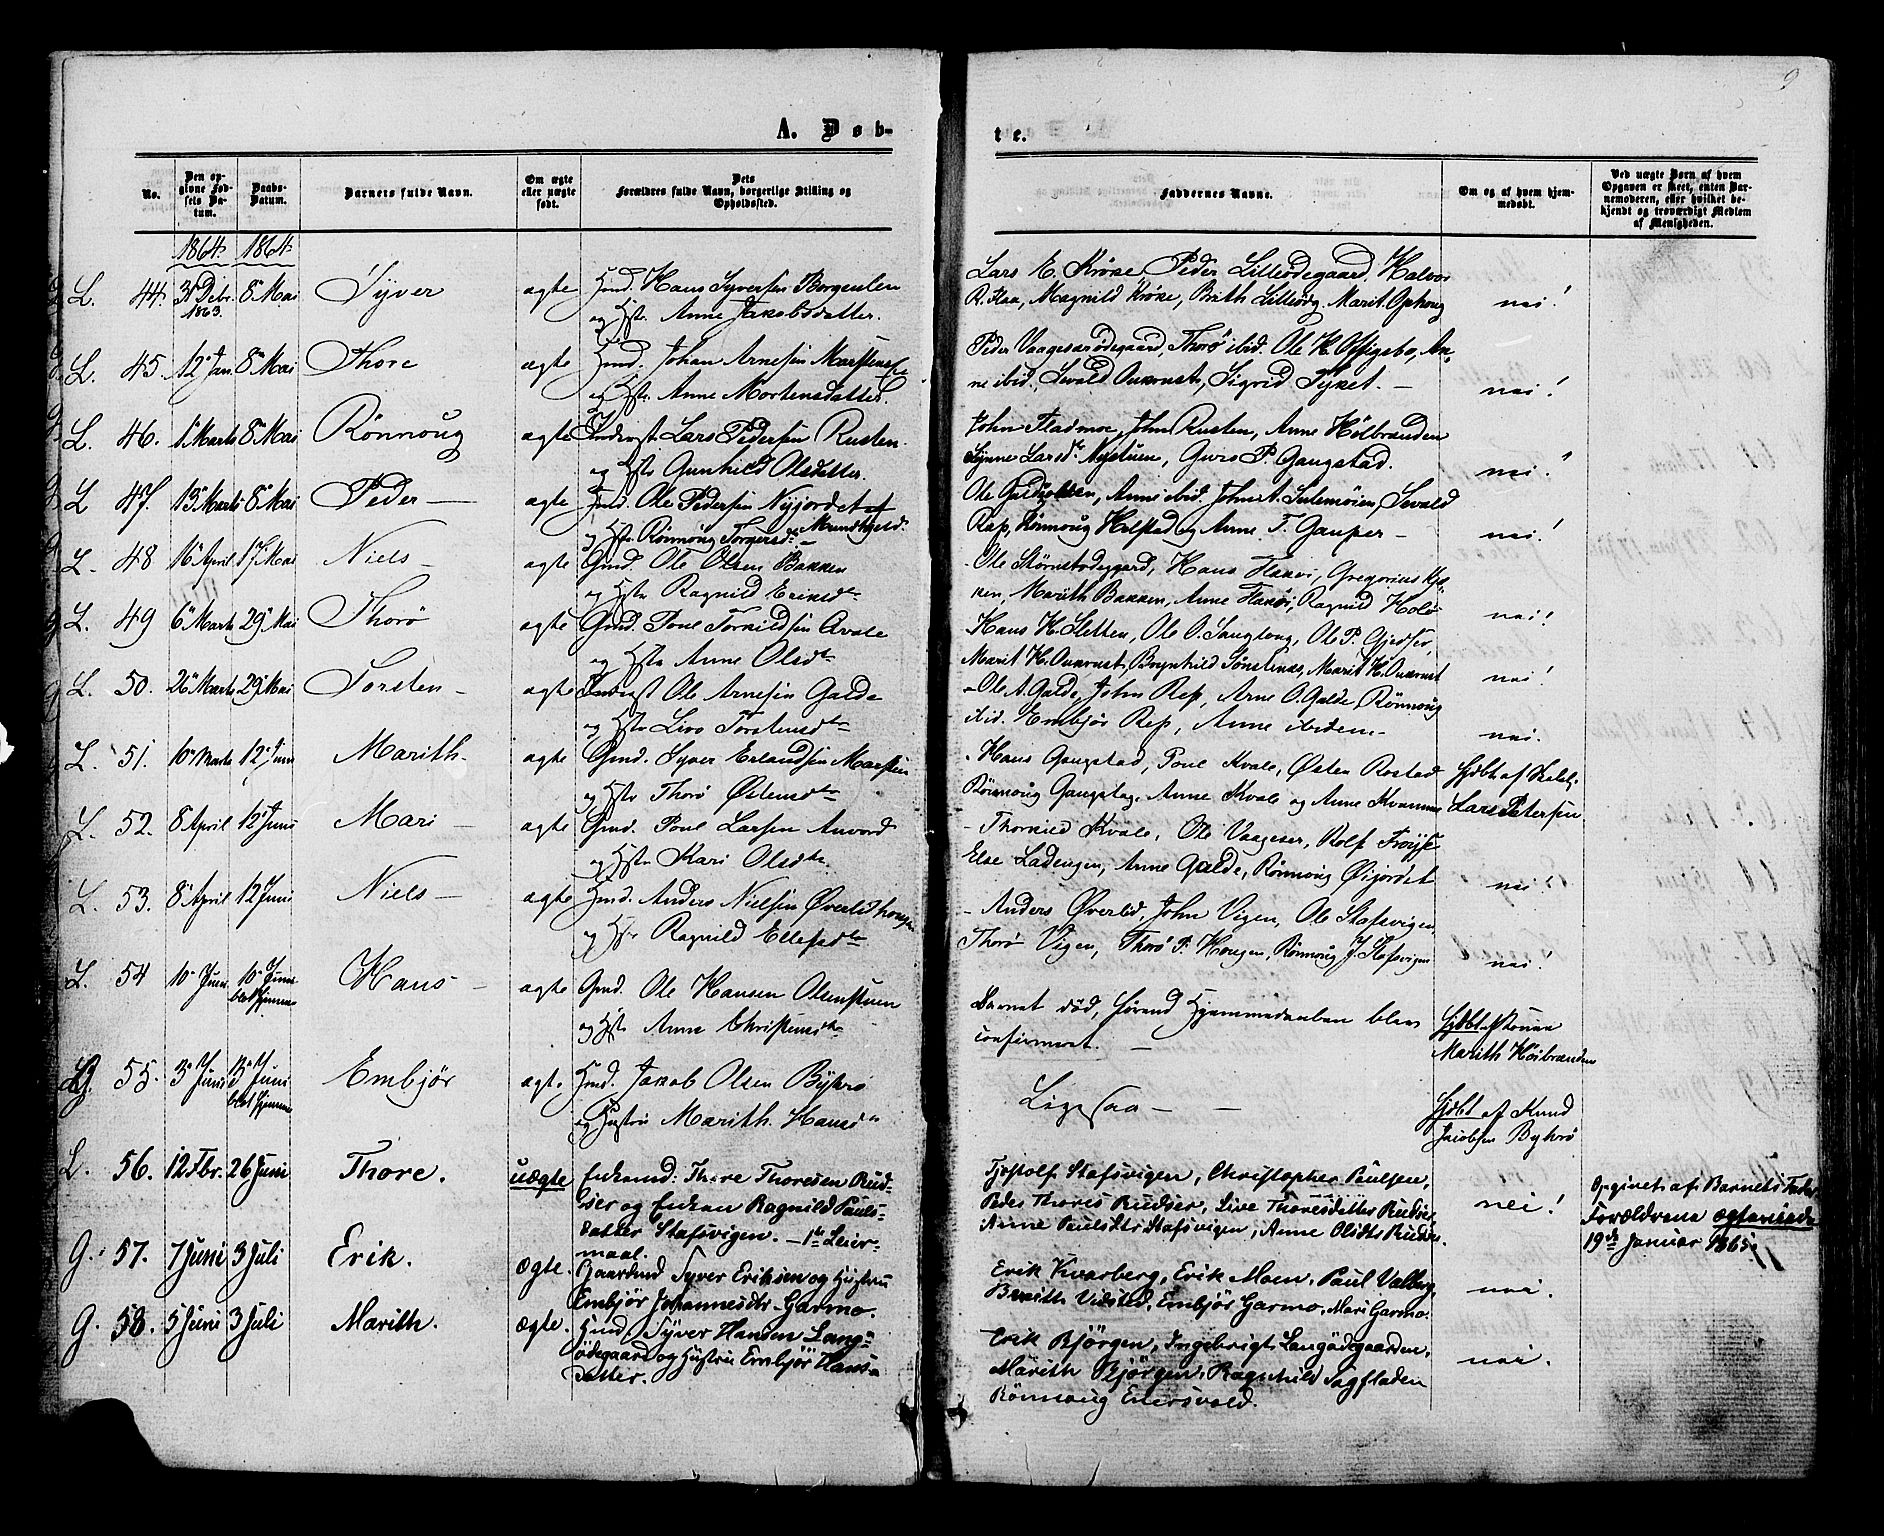 9
A. Døb-
te.
No.
Den op-
givne Fød-
sels Da-
tum.
Daabs-
Datum.
Barnets fulde Navn.
Om ægte
eller uægte
født.
Dets
Forældres fulde Navn, borgerlige Stilling og
Opholdssted.
Faddernes Navne.
Om og af hvem hjem-
medøbt.
Ved uægte Børn af hvem
Opgaven er skeet, enten Bar-
nemoderen, eller hvilket be-
kjendt og troværdigt Medlem
af Menigheden.
1864. 1864.
L. 44. 31 Debr. 1863. 8de Mai Syver ægte Gmd. Hans Syversen Borgenlen
og Hst. Anne Jakobsdatter.
Lars E. Krøke, Peder Lilleødegaard, Halvor
R. Flaa, Magnild Krøke, Brith Lilleødg. Marit Ophoug
nei!
L. 45. 12 Jan. 8 Mai Thore ægte Hmd. Johan Arnesen
og Hst. Anne Mortensdatter.
Peder Vaagesarødegaard, Thorø ibid. Ole H. Ossigebo, An-
ne ibid, Sevald Aukrust, Sigrid Syket. —
nei!
L. 46. 1 Marts 8 Mai Rønnoug ægte Inderst Lars Pedersen Rusten.
og Hst. Gunhild Olsdatter.
John Fladmoe, John Rusten, Anne Hølbranden
Synne Larsdr Nystuen, Guro P. Gaugstad.
nei!
L 47. 13 Marts 8 Mai Peder — ægte Gmd. Ole Pedersen Nyjordet af
og Hst. Rønnoug Torgersdr. —
Ole Galdesanden, Anne ibid. John A. Sulemøien, Sevald
Rep, Rønnoug Holstad og Anne T. Gauper —
nei!
L. 48 16 April 17 Mai Niels — ægte Gmd. Ole Olsen Bakken
og Hstr. Ragnild Eriksdtr
Ole Størnstødegaard, Hans Flakøi, Gregorius
ken, Marith Bakken, Anne Flakøi, Ragnild Holø
nei!
L. 49 6 Marts 29 Mai Thorø ægte Gmd. Poul Torkildsen Qvale
og Hstr Anne Olsdtr
Hans H. Sletten, Ole O. Sangloug, Ole P. Gjedser,
Marit H. Aukrust, Brynhild Sønstenes, Marit H. Aukrust
nei!
L. 50. 26 Marts 29 Mai Torsten — ægte Inderst Ole Arnesen Galde
og Hstr Live Torstensdtr
Ole A. Galde, John Rep, Arne O. Galde, Rønnoug
ibid. Embjør Rep, Anne ibidem —
nei.
L. 51. 10 Marts 12 Juni Marith. ægte Gmd. Syver Erlandsen Marstein
og Hstr Thorø Østensdtr
Hans Gaugstad, Poul Kvale, Østen Rostad
Rønnoug Gaugstad, Anne Kvale og Anne Kvamme
Hjdbt af Skolelr.
Lars Petersen
L. 52. 8 April 12 Juni Mari — ægte Gmd. Poul Larsen
og Hstr Kari Olsdtr.
Thorkild Kvale, Ole Vaageser, Rolf Frøyse
Else Ladengen, Anne Galde, Rønnoug Øijordet
nei!
L. 53. 8 April 12 Juni Niels — ægte Hmd. Anders Nielsen Øverlidhougen
og Hstr Ragnild Ellefsdtr
Anders Øverlid, John Vigen, Ole Stafsvigen,
Thorø Vigen, Thorø P. Hougen, Rønnoug J. Stafsvigen
nei!
L. 54 10 Juni 10 Juni blot hjemme Hans — ægte Gmd. Ole Hansen Olenstuen
og Hstr Anne Christensdtr
Barnet død, førend Hjemmedaaben blev
confirmeret. —
Hjdbt af Konen
Marith Høibranden
55. 13 Juni 13 Juni blot hjemme Embjør ægte. Hmd. Jakob Olsen Bykrø
og Hustru Marith Hansdr
Ligesaa — —
Hjdbt af Knud
Jacobsen Bykrø
L. 56. 12 Fbr. 26 Juni Thore. uægte Enkemd: Thore Thoresen Rud-
ser og Enken Ragnild Pauls-
datter Stafsvigen. — 1ste Leier-
maal.
Tjostolf Stafsvigen, Christopher Paulsen,
Peder Thores Rudser, Live Thoresdatter Rudser,
Anne Paulsdtr Stafsvigen, Anne Olsdtr Rudser.
nei!
Opgivet af Barnets Fader
Forældrene ægteviede
19de Januar 1865.
G. 57. 7 Juni 3 Juli Erik. ægte. Gaardmd Syver Eriksen og Hustru
Embjør Johannesdtr Garmo.
Erik Kvarberg, Erik Moen, Paul Valberg,
Brith Vidsted, Embjør Garmo, Mari Garmo.
nei.
G. 58. 5 Juni 3 Juli Marith. ægte. Hmd Syver Hansen Lang-
ødegaard og Hustru Embjør Hans-
datter.
Erik Bjørgen, Ingebrigt Langødegaarden,
Marith Bjørgen, Ragnhild Sagfladen
Rønnoug Eilersvold.
nei.